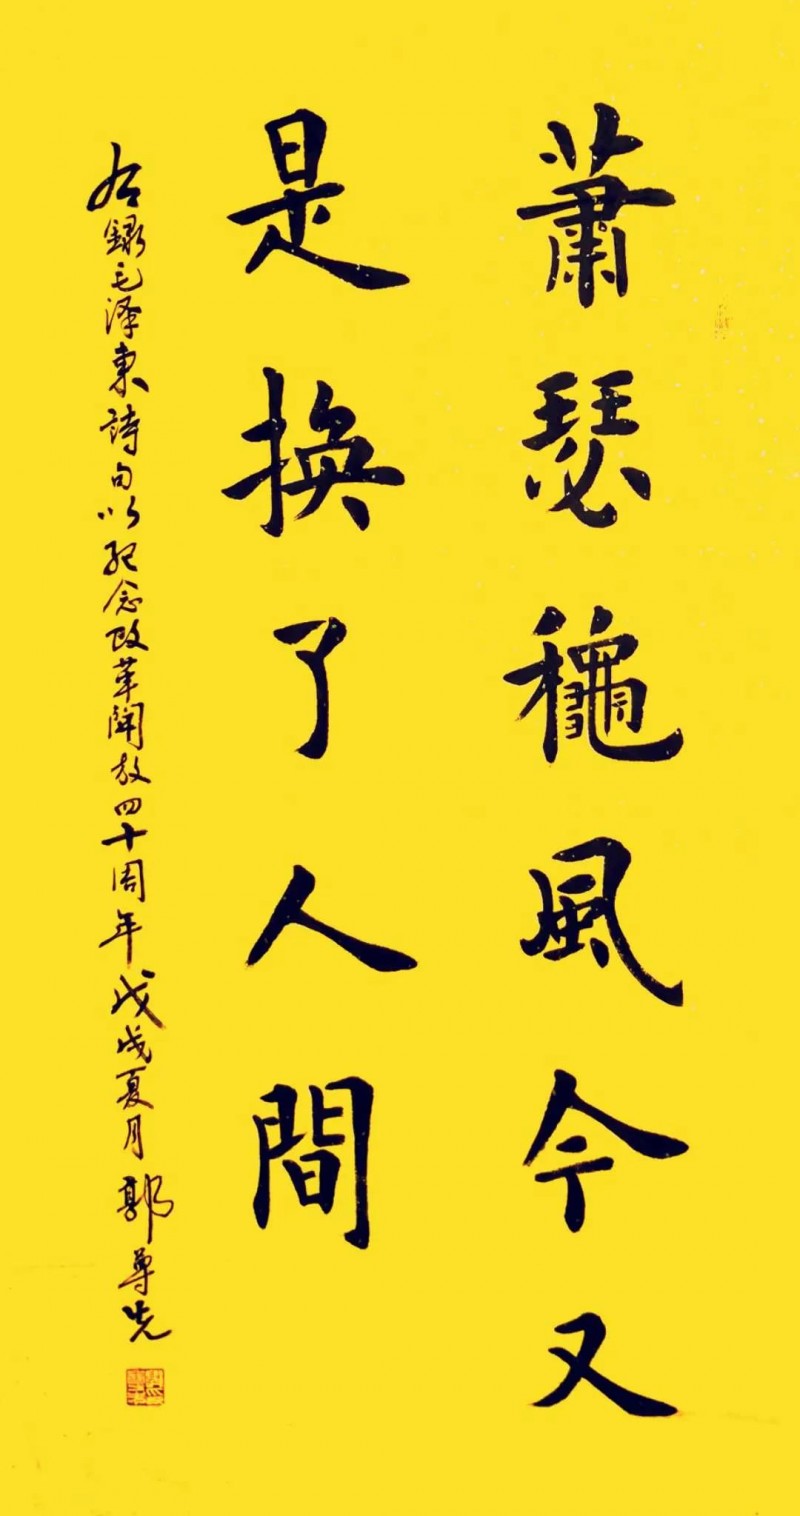 蕭瑟龝風今又
是換了人間
右録毛泽東詩句以纪念改革開放四十周年戊戌夏月郭尊先